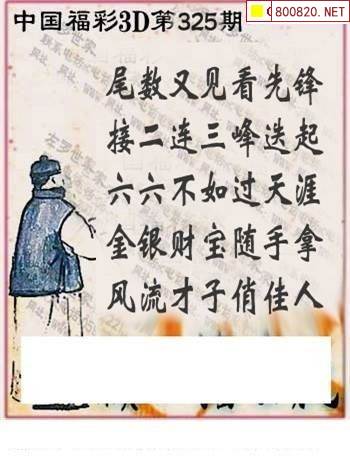 中国福彩3D第325期
800820.NET
尾数又见看先锋
接二连三峰迭起
六六不如过天涯
金银财宝随手拿
风流才子俏佳人